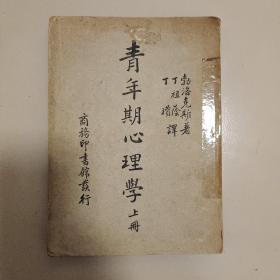 勃洛克斯著
丁祖蔭
丁瓚 譯
青年期心理學 上冊
商務印書館發行